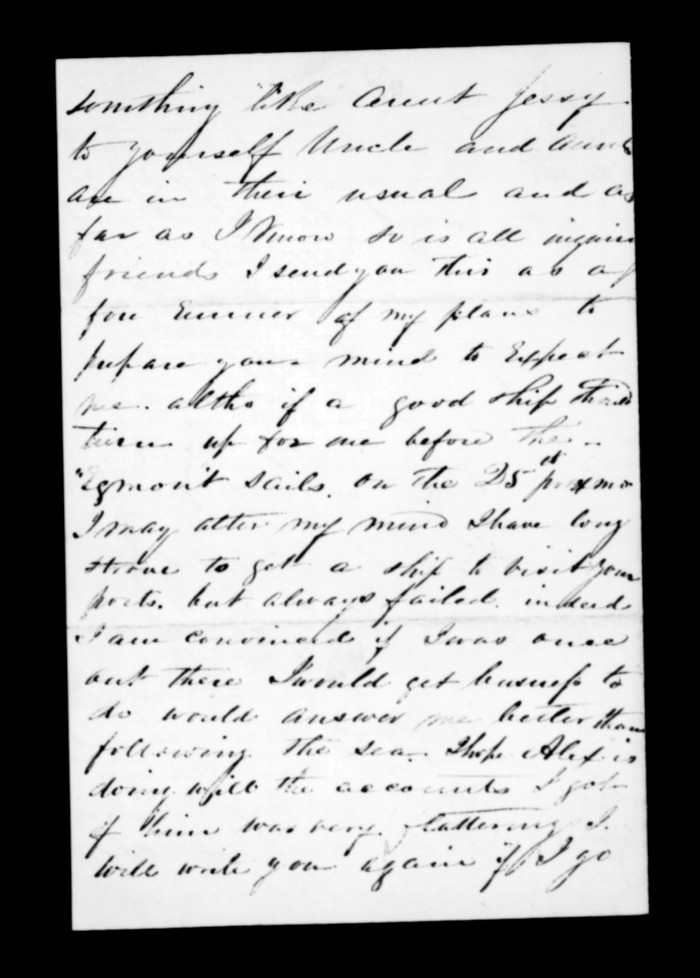 something like Aunt Jessy
to yourself Uncle and Aunt
are in their usual and as
far as I know so is all inquiring
friends I send you this as a
fore runner of my plans to
prepare your mind to Expect
me. altho if a good ship should
turn up for me before the
"Egmont sails. on the 25th proxmo
I may alter my mind I have long
strove to get a ship to visit your
ports. but always failed. indeed
I am convinced if I was once
out there I would get business to
do would answer me better than
following the sea. I hope Alex is
doing well the accounts I got
of him was very flattering I
will write you again if I go